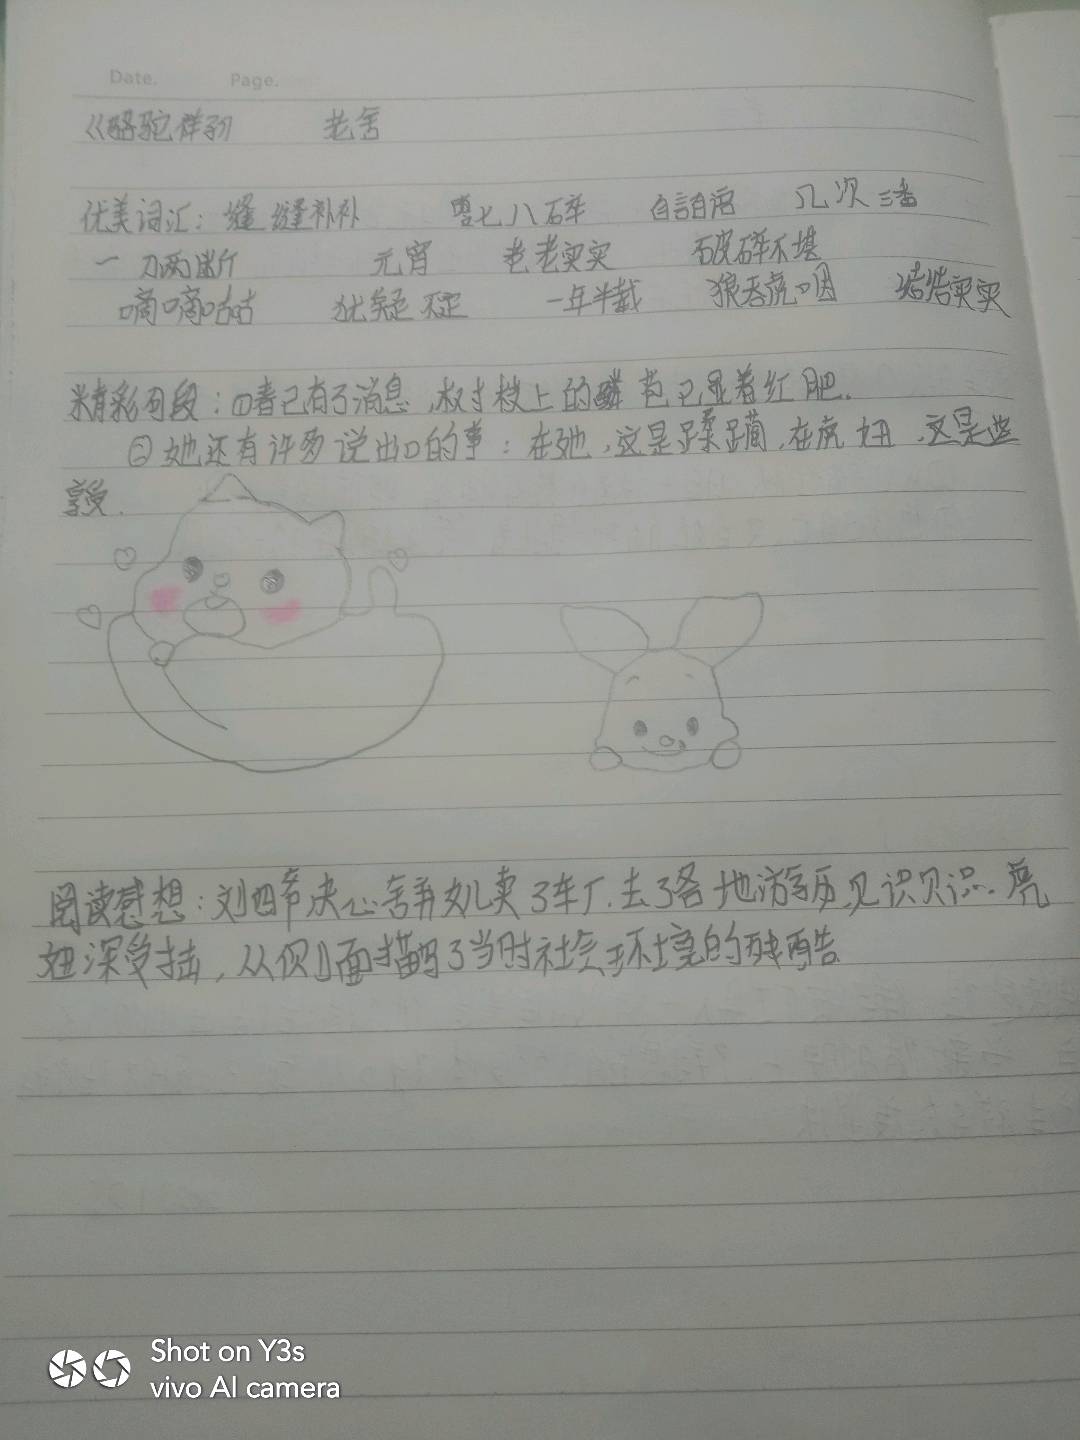 Date. Page.
《骆驼祥子》 老舍
优美词汇：缝缝补补 零七八碎 自言自语 几次三番
一刀两断 元宵 老老实实 破碎不堪
嘀嘀咕咕 犹疑不定 一年半载 狼吞虎咽 结结实实
精彩句段：①春已有了消息，树枝上的鳞苞已显着红肥.
②她还有许多说出口的事：在她，这是蹂躏，在虎妞，这是些
享受.
阅读感想：刘四爷决心舍弃女儿卖了车厂.去了各地游历见识见识.虎
妞深受打击，从侧面描写了当时社会环境的残酷
Shot on Y3s
vivo AI camera